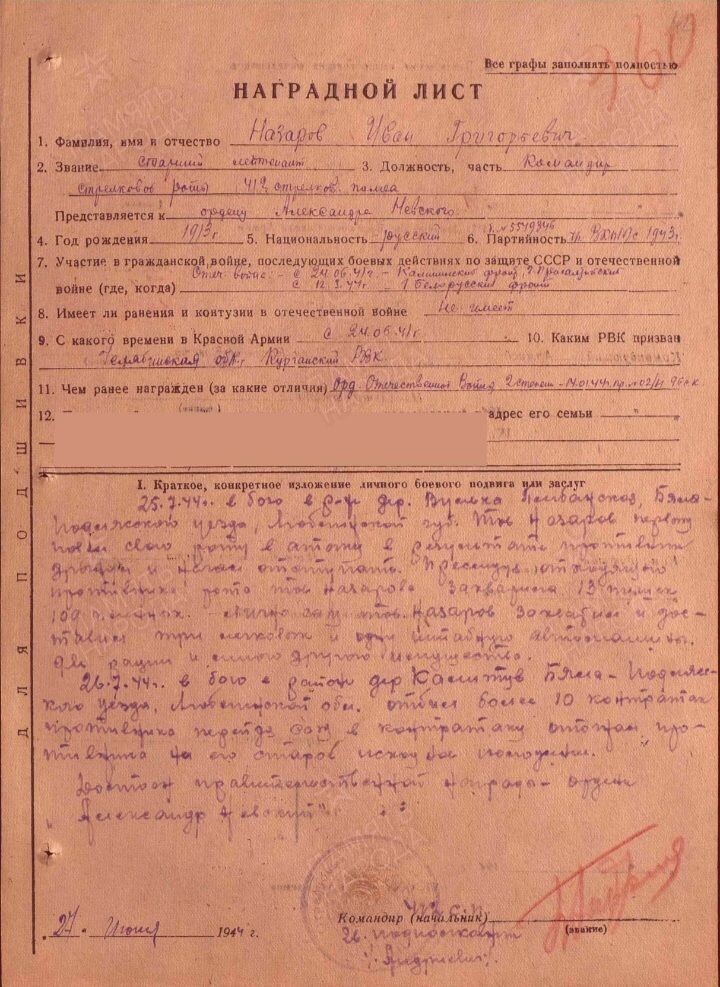 360
Все графы заполнять полностью
НАГРАДНОЙ ЛИСТ
1. Фамилия, имя и отчество Назаров Иван Григорьевич
2. Звание старший лейтенант 3. Должность, часть Командир
стрелковой роты 412 стрелков. полка
Представляется к ордену Александра Невского
№ 5549846
4. Год рождения 1913г 5. Национальность русский 6. Партийность чл. ВКП(б) с 1943г.
7. Участие в гражданской войне, последующих боевых действиях по защите СССР и отечественной
Отеч. войне - с 24.06.41г - Калининский фронт, 2 Прибалтийский
войне (где, когда) с 12.3.44г - 1 Белорусский фронт
8. Имеет ли ранения и контузии в отечественной войне Не имеет
9. С какого времени в Красной Армии с 24.06.41г 10. Каким РВК призван
Челябинская обл. Курганский РВК
11. Чем ранее награжден (за какие отличия) Орд. Отечественной Войны 2 степени - 14.01.44г. пр. № 02/н
12. адрес его семьи
I. Краткое, конкретное изложение личного боевого подвига или заслуг
25.7.44г. в бою в р-не дер. Вулька Бяла-
Подляского уезда, Люблинской губ. Тов Назаров первому
повел свою роту в атаку в результате противник
и начал отступать. Преследуя отходящего
противника рота тов Назарова захватила 13
109 Лично сам тов. Назаров захватил и дос-
тавил три легковых и одну штабную автомашины.
Две рации и много другого имущества.
26.7.44г. в бою в районе дер Бяла-Подляс-
кого уезда, Люблинской обл. отбил более 10 контратак
противника перейдя сам в контратаку отогнал про-
тивника на его старое исходное положение.
Достоин правительственной награды - ордена
"Александр Невский"
ДЛЯ ПОДШИВКИ
27 Июля 1944 г.
Командир (начальник) 412 с.п.
(звание)
гв. подполковник
/Андриевич/